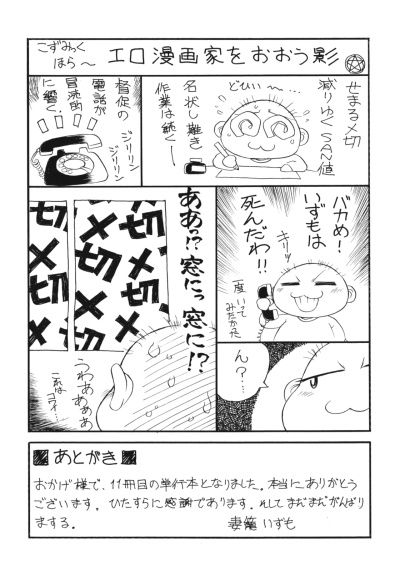 こずみっく
ほら〜
エロ漫画家をおおう影
せまる〆切
減りゆくSAN値
どひぃ〜…
名状し難き
作業は続く―
督促の
電話が
冒涜的
に響く。
ジリリリン
ジリリリン
バカめ!
いずもは
死んだわ!!
キリッ
一度いって
みたかった
ん?…
ああ!?窓にっ窓に!?
〆切
〆切
〆切
うわあぁぁぁ
これは
コワイ…
あとがき
おかげ様で、11冊目の単行本となりました。本当にありがとう
ございます。ひたすらに感謝であります。そしてまだまだがんばり
まする。
妻籠いずも